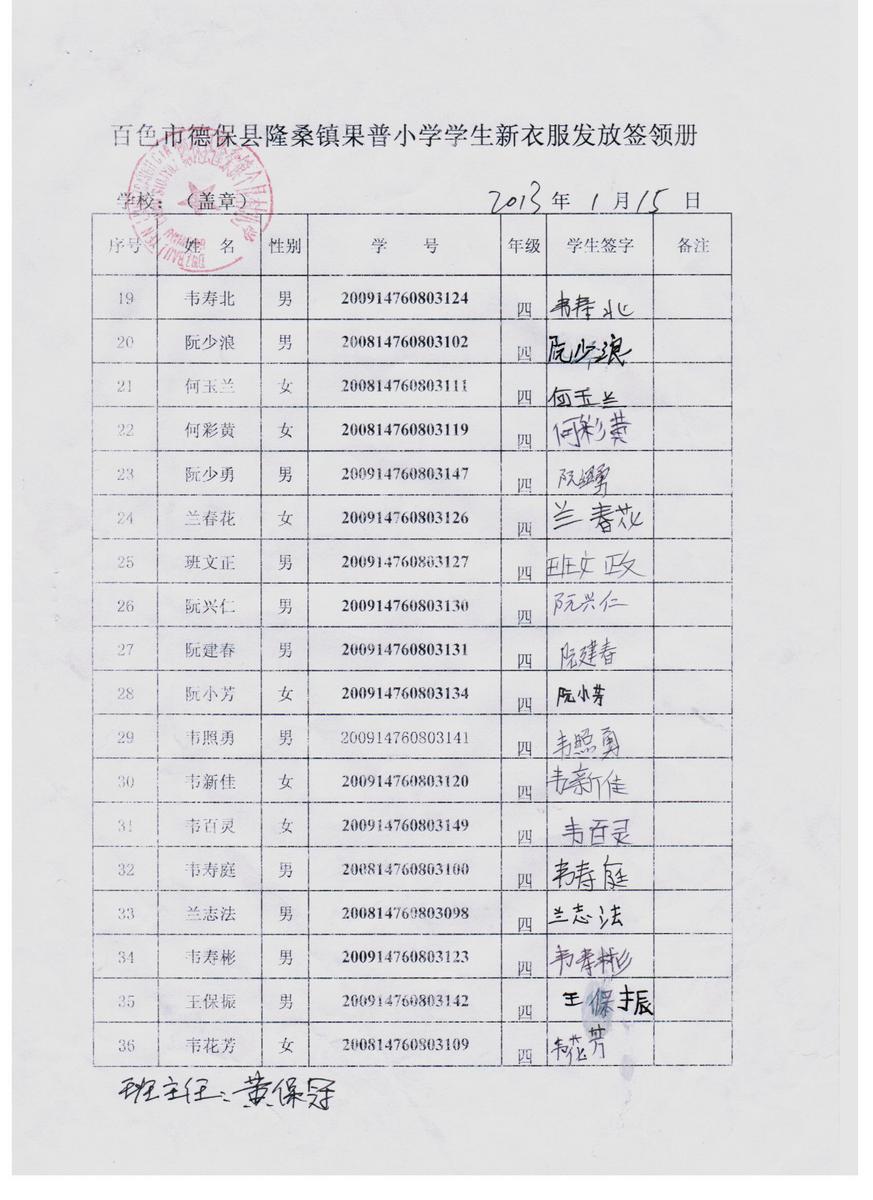 百色市德保县隆桑镇果普小学学生新衣服发放签领册
学校：（盖章） 2013 年 1 月 15 日
序号 姓 名 性别 学 号 年级 学生签字 备注
19 韦寿北 男 200914760803124 四 韦寿北
20 阮少浪 男 200814760803102 四 阮少浪
21 何玉兰 女 200814760803111 四 何玉兰
22 何彩黄 女 200814760803119 四 何彩黄
23 阮少勇 男 200914760803147 四
24 兰春花 女 200914760803126 四 兰春花
25 班文正 男 200914760803127 四 班文政
26 阮兴仁 男 200914760803130 四 阮兴仁
27 阮建春 男 200914760803131 四 阮建春
28 阮小芳 女 200914760803134 四 阮小芳
29 韦照勇 男 200914760803141 四 韦照勇
30 韦新佳 女 200914760803120 四 韦新佳
31 韦百灵 女 200914760803149 四 韦百灵
32 韦寿庭 男 200814760803100 四 韦寿庭
33 兰志法 男 200814760803098 四 兰志法
34 韦寿彬 男 200914760803123 四 韦寿彬
35 王保振 男 200914760803142 四 王保振
36 韦花芳 女 200814760803109 四 韦花芳
班主任：黄保冠